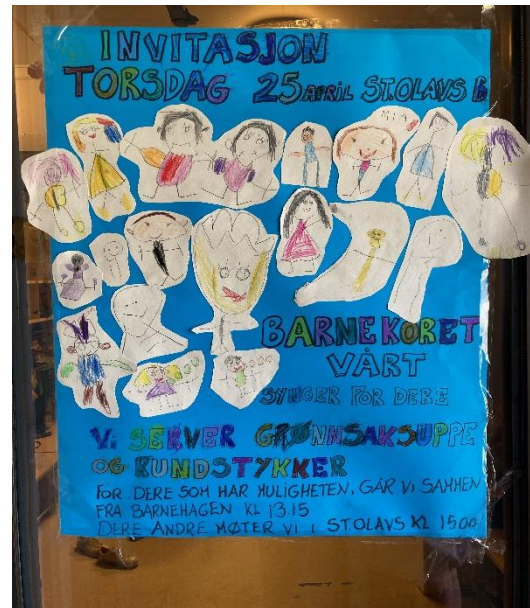 INVITASJON
TORSDAG 25 APRIL ST.OLAVS B
MIA
BARNEKORET
VÅRT
SYNGER FOR DERE
Vi SERVER GRØNNSAKSUPPE
OG RUNDSTYKKER
FOR DERE SOM HAR MULIGHETEN, GÅR Vi SAMMEN
FRA BARNEHAGEN KL 13.15
DERE ANDRE MØTER Vi i ST OLAVS KL 1500